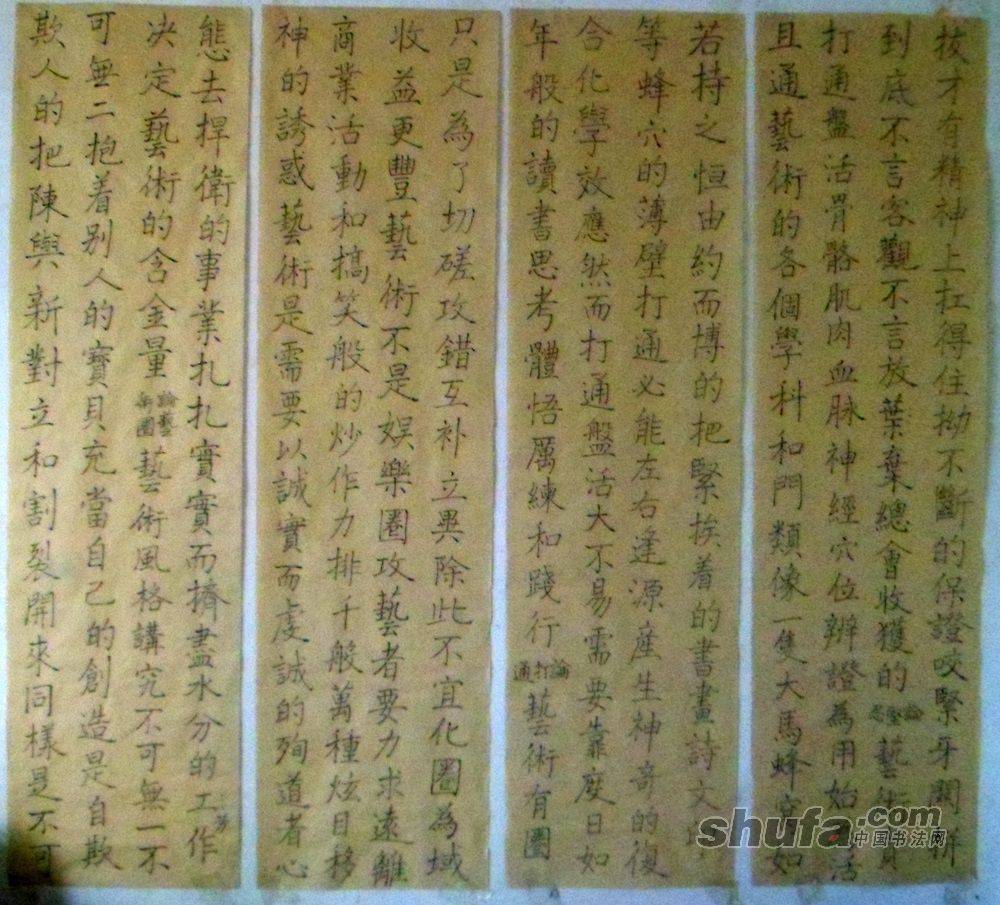 拔才有精神上扛得住拗不斷的保證咬緊牙關拼
到底不言客觀不言放葉棄總會收獲的 藝術貴
打通盤活骨骼肌肉血脉神經穴位辨證為用始通活
且通藝術的各個學科和門類像一隻大馬蜂窩如
若持之恒由約而博的把緊挨着的書畫詩文印
等蜂穴的薄壁打通必能左右逢源産生神奇的復
合化學效應然而打通盤活大不易需要靠度日如
年般的讀書思考體悟厲練和踐行論打通藝術有圈
只是為了切磋攻錯互补立異除此不宜化圈為域
收益更豐藝術不是娱樂圈攻藝者要力求遠離
商業活動和搞笑般的炒作力排千般萬種炫目移
神的誘惑藝術是需要以誠實而虔誠的殉道者心
態去捍衛的事業扎扎實實而擠盡水分的工作
芳
决定藝術的含金量論藝無圈藝術風格講究不可無一不
可無二抱着别人的寶貝充當自己的創造是自欺
欺人的把陳與新對立和割裂開來同樣是不可
shufa.com
中国书法网